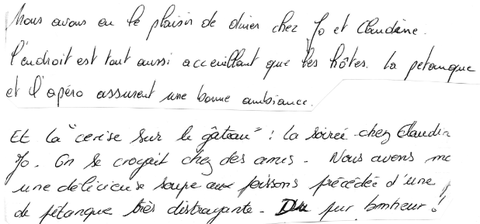 Nous avons eu le plaisir de diner chez Jo et Claudine.
l'endroit est tout aussi accueillant que les hôtes. la petanque
et l'apéro assurent une bonne ambiance.
Et la "cerise sur le gâteau" : la soirée chez Claudin
Jo. On se croyait chez des amis. Nous avons m
une délicieuse soupe aux poissons précédée d'une
de pétanque très distrayante. Du pur bonheur !